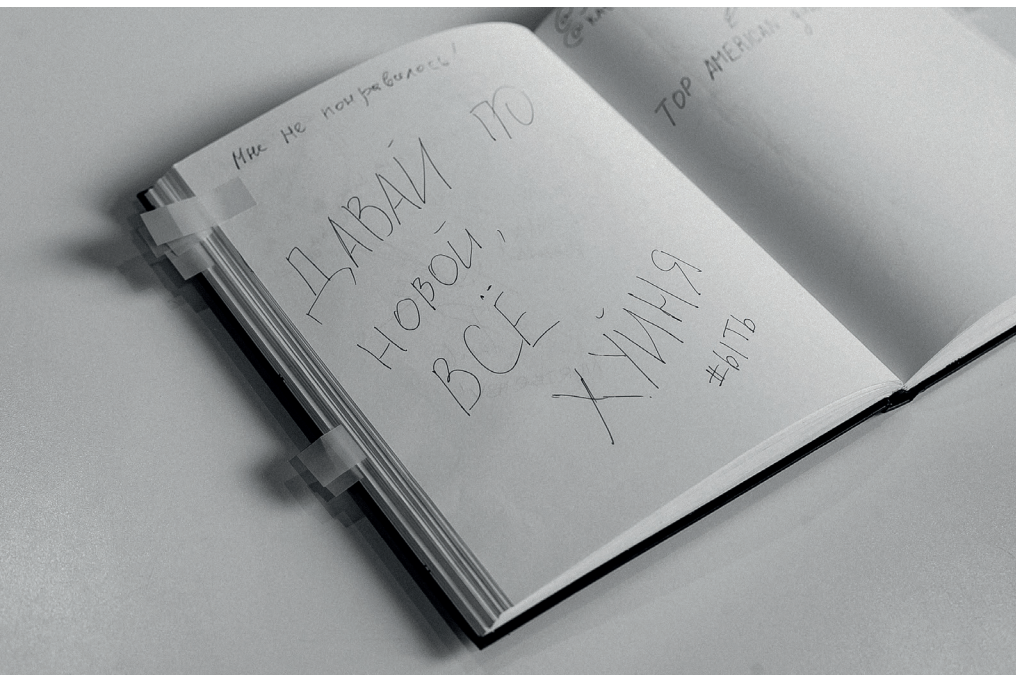 Мне не понравилось!
ДАВАЙ ПО
НОВОЙ,
ВСЁ
ХУЙНЯ
#ЫТЬ
TOP AMERICAN